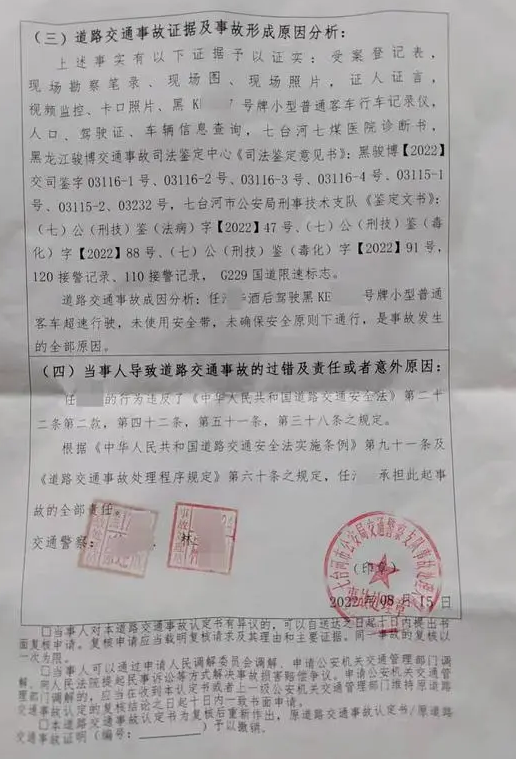 (三) 道路交通事故证据及事故形成原因分析:
上述事实有以下证据予以证实: 受案登记表,
现场勘察笔录、现场图、现场照片, 证人证言,
视频监控、卡口照片、黑 K 7 号牌小型普通客车行车记录仪,
人口、驾驶证、车辆信息查询, 七台河七煤医院诊断书,
黑龙江骏博交通事故司法鉴定中心《司法鉴定意见书》: 黑骏博【2022】
交司鉴字 03116-1 号、03116-2 号、03116-3 号、03116-4 号、03115-1
号、03115-2、03232 号, 七台河市公安局刑事技术支队《鉴定文书》:
(七) 公 (刑技) 鉴 (法病) 字【2022】47 号、(七) 公 (刑技) 鉴 (毒
化) 字【2022】88 号、(七) 公 (刑技) 鉴 (毒化) 字【2022】91 号,
120 接警记录、110 接警记录, G229 国道限速标志。
道路交通事故成因分析: 任 酒后驾驶黑 KE 号牌小型普通
客车超速行驶, 未使用安全带, 未确保安全原则下通行, 是事故发生
的全部原因。
(四) 当事人导致道路交通事故的过错及责任或者意外原因:
任 的行为违反了《中华人民共和国道路交通安全法》第二十
二条第二款, 第四十二条, 第五十一条, 第三十八条之规定。
根据《中华人民共和国道路交通安全法实施条例》第九十一条及
《道路交通事故处理程序规定》第六十条之规定, 任 承担此起事
故的全部责任。
交通警察:
林
七台河市公安局交通警察支队事故处理
(印章)
事故处理章
2022 年 08 月 15 日
□当事人对本道路交通事故认定书有异议的, 可以自送达之日起十日内提出书
面复核申请。复核申请应当载明复核请求及其理由和主要证据。同一事故的复核以
一次为限。
□当事人可以通过申请人民调解委员会调解、申请公安机关交通管理部门调
解、向人民法院提起民事诉讼等方式解决事故损害赔偿争议。申请公安机关交通管
理部门调解的, 应当在收到本认定书或者上一级公安机关交通管理部门维持原道路
交通事故认定的复核结论之日起十日内一致书面申请。
□本道路交通事故认定书为复核后重新作出, 原道路交通事故认定书/原道路
交通事故证明 (编号: ) 予以撤销。